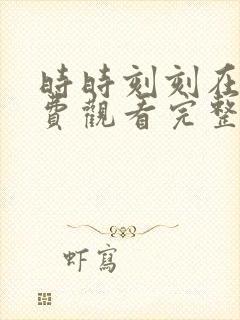 時時刻刻在
費觀看完整
虾寫